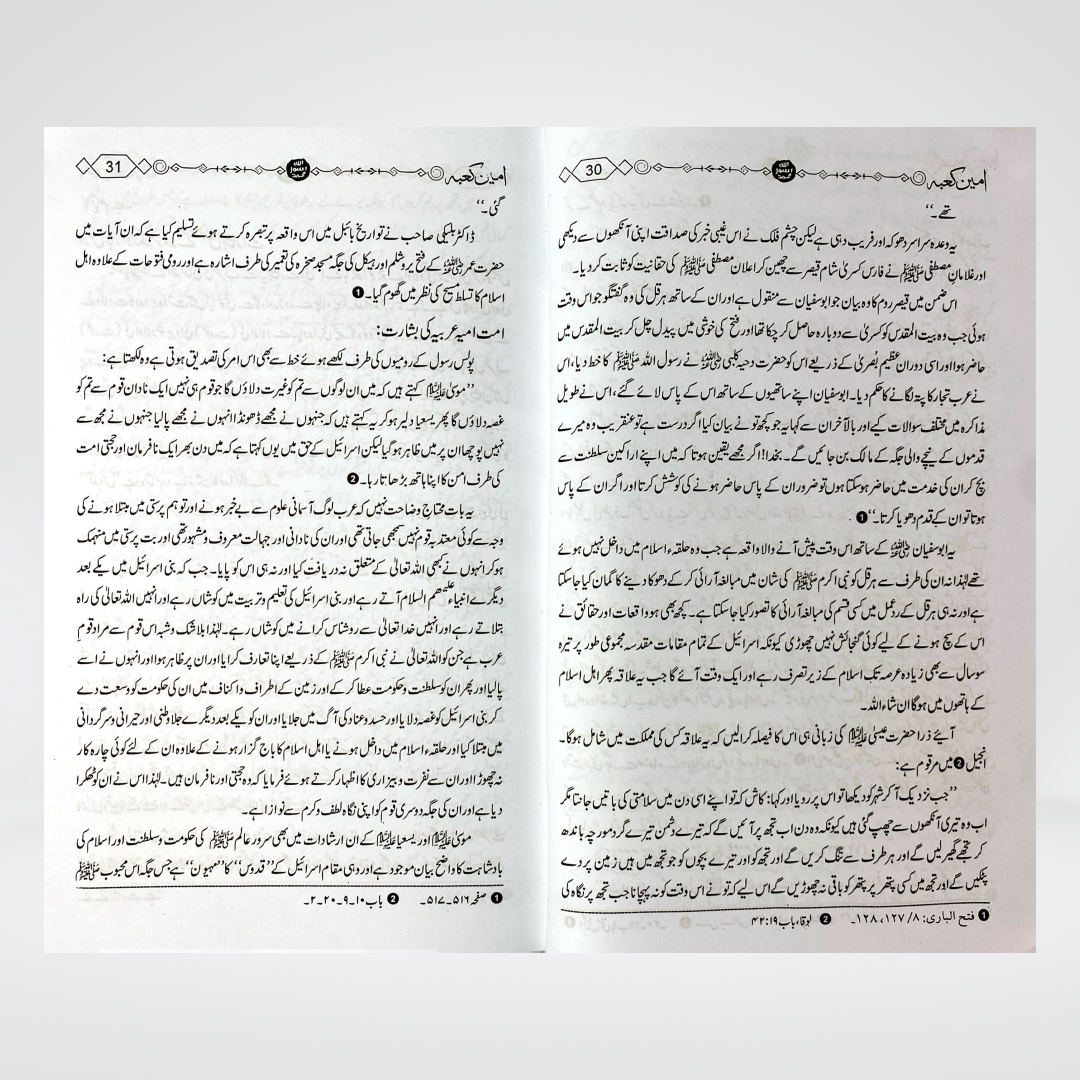 امین کعبہ
30
تھے۔‘‘
یہ وعدہ سراسر دھوکہ اور فریب دہی ہے لیکن چشم فلک نے اس غیبی خبر کی صداقت اپنی آنکھوں سے دیکھی
اور غلامانِ مصطفی ﷺ نے فارس کسریٰ شام قیصر سے چھین کر اعلان مصطفی ﷺ کی حقانیت کو ثابت کر دیا۔
اس ضمن میں قیصر روم کا وہ بیان جو ابوسفیان سے منقول ہے اور ان کے ساتھ ہرقل کی وہ گفتگو جو اس وقت
ہوئی جب وہ بیت المقدس کو کسریٰ سے دوبارہ حاصل کر چکا تھا اور فتح کی خوشی میں پیدل چل کر بیت المقدس میں
حاضر ہوا اور اسی دوران عظیم بُصریٰ کے ذریعے اس کو حضرت دحیہ کلبی رضی اللہ عنہ نے رسول اللہ ﷺ کا خط دیا، اس
نے عرب تجار کا پتہ لگانے کا حکم دیا۔ ابوسفیان اپنے ساتھیوں کے ساتھ اس کے پاس لائے گئے، اس نے طویل
مذاکرہ میں مختلف سوالات کیے اور بالآخر ان سے کہا یہ جو کچھ تو نے بیان کیا اگر درست ہے تو عنقریب وہ میرے
قدموں کے نیچے والی جگہ کے مالک بن جائیں گے۔ بخدا! اگر مجھے یقین ہوتا کہ میں اپنے اراکین سلطنت سے
بچ کر ان کی خدمت میں حاضر ہو سکتا ہوں تو ضرور ان کے پاس حاضر ہونے کی کوشش کرتا اور اگر ان کے پاس
ہوتا تو ان کے قدم دھویا کرتا۔‘‘ ❶
یہ ابوسفیان رضی اللہ عنہ کے ساتھ اس وقت پیش آنے والا واقعہ ہے جب وہ حلقہء اسلام میں داخل نہیں ہوئے
تھے لہٰذا نہ ان کی طرف سے ہرقل کو نبی اکرم ﷺ کی شان میں مبالغہ آرائی کر کے دھوکا دینے کا گمان کیا جا سکتا
ہے اور نہ ہی ہرقل کے ردِعمل میں کسی قسم کی مبالغہ آرائی کا تصور کیا جا سکتا ہے۔ کچھ بھی ہو واقعات اور حقائق نے
اس کے سچ ہونے کے لیے کوئی گنجائش نہیں چھوڑی کیونکہ اسرائیل کے تمام مقامات مقدسہ مجموعی طور پر تیرہ
سو سال سے بھی زیادہ عرصہ تک اسلام کے زیر تصرف رہے اور ایک وقت آئے گا جب یہ علاقہ پھر اہل اسلام
کے ہاتھوں میں ہوگا ان شاء اللہ۔
آیئے ذرا حضرت عیسیٰ علیہ السلام کی زبانی ہی اس کا فیصلہ کرا لیں کہ یہ علاقہ کس کی مملکت میں شامل ہوگا۔
انجیل ❷ میں مرقوم ہے:
’’جب نزدیک آ کر شہر کو دیکھا تو اس پر رویا اور کہا: کاش کہ تو اپنے اسی دن میں سلامتی کی باتیں جانتا مگر
اب وہ تیری آنکھوں سے چھپ گئی ہیں کیونکہ وہ دن اب تجھ پر آئیں گے کہ تیرے دشمن تیرے گرد مورچہ باندھ
کر تجھے گھیر لیں گے اور ہر طرف سے تنگ کریں گے اور تجھ کو اور تیرے بچوں کو جو تجھ میں ہیں زمین پر دے
پٹکیں گے اور تجھ میں کسی پتھر پر پتھر کو باقی نہ چھوڑیں گے اس لیے کہ تو نے اس وقت کو نہ پہچانا جب تجھ پر نگاہ کی
❶ فتح الباری: ۸/ ۱۲۷، ۱۲۸۔ ❷ لوقا، باب ۱۹:۴۲
امین کعبہ
31
گئی۔‘‘
ڈاکٹر بلیکی صاحب نے تواریخ بائبل میں اس واقعہ پر تبصرہ کرتے ہوئے تسلیم کیا ہے کہ ان آیات میں
حضرت عمر رضی اللہ عنہ کے فتح یروشلم اور ہیکل کی جگہ مسجد صخرہ کی تعمیر کی طرف اشارہ ہے اور رومی فتوحات کے علاوہ اہل
اسلام کا تسلط مسیح کی نظر میں گھوم گیا۔ ❶
امت امیہ عربیہ کی بشارت:
پولس رسول کے رومیوں کی طرف لکھے ہوئے خط سے بھی اس امر کی تصدیق ہوتی ہے وہ لکھتا ہے:
’’موسیٰ علیہ السلام کہتے ہیں کہ میں ان لوگوں سے تم کو غیرت دلاؤں گا جو قوم ہی نہیں ایک نادان قوم سے تم کو
غصہ دلاؤں گا پھر یسعیا دلیر ہو کر یہ کہتے ہیں کہ جنہوں نے مجھے ڈھونڈا انہوں نے مجھے پالیا جنہوں نے مجھ سے
نہیں پوچھا ان پر میں ظاہر ہو گیا لیکن اسرائیل کے حق میں یوں کہتا ہے کہ میں دن بھر ایک نافرمان اور حجتی امت
کی طرف امن کا اپنا ہاتھ بڑھاتا رہا۔ ❷
یہ بات محتاجِ وضاحت نہیں کہ عرب لوگ آسمانی علوم سے بے خبر ہونے اور توہم پرستی میں مبتلا ہونے کی
وجہ سے کوئی معتد بہ قوم نہیں سمجھی جاتی تھی اور ان کی نادانی اور جہالت معروف و مشہور تھی اور بت پرستی میں منہمک
ہو کر انہوں نے کبھی اللہ تعالیٰ کے متعلق نہ دریافت کیا اور نہ ہی اس کو پایا۔ جب کہ بنی اسرائیل میں یکے بعد
دیگرے انبیاء علیہم السلام آتے رہے اور بنی اسرائیل کی تعلیم و تربیت میں کوشاں رہے اور انہیں اللہ تعالیٰ کی راہ
بتلاتے رہے اور انہیں خدا تعالیٰ سے روشناس کرانے میں کوشاں رہے۔ لہٰذا بلا شک و شبہ اس قوم سے مراد قوم
عرب ہے جن کو اللہ تعالیٰ نے نبی اکرم ﷺ کے ذریعے اپنا تعارف کرایا اور ان پر ظاہر ہوا اور انہوں نے اسے
پالیا اور پھر ان کو سلطنت و حکومت عطا کر کے اور زمین کے اطراف و اکناف میں ان کی حکومت کو وسعت دے
کر بنی اسرائیل کو غصہ دلایا اور حسد و عناد کی آگ میں جلایا اور ان کو یکے بعد دیگرے جلاوطنی اور حیرانی و سرگردانی
میں مبتلا کیا اور حلقہء اسلام میں داخل ہونے یا اہل اسلام کا باج گزار ہونے کے علاوہ ان کے لئے کوئی چارہ کار
نہ چھوڑا اور ان سے نفرت و بیزاری کا اظہار کرتے ہوئے فرمایا کہ وہ حجتی اور نافرمان ہیں۔ لہٰذا اس نے ان کو ٹھکرا
دیا ہے اور ان کی جگہ دوسری قوم کو اپنی نگاہ لطف و کرم سے نوازا ہے۔
موسیٰ علیہ السلام اور یسعیا علیہ السلام کے ان ارشادات میں بھی سرور عالم ﷺ کی حکومت و سلطنت اور اسلام کی
بادشاہت کا واضح بیان موجود ہے اور وہی مقام اسرائیل کے ’’قدوس‘‘ کا ’’صہیون‘‘ ہے جس جگہ اس محبوب ﷺ
❶ صفحہ ۵۱۶۔۵۱۷۔ ❷ باب ۱۰۔۹۔۲۰۔۲۔